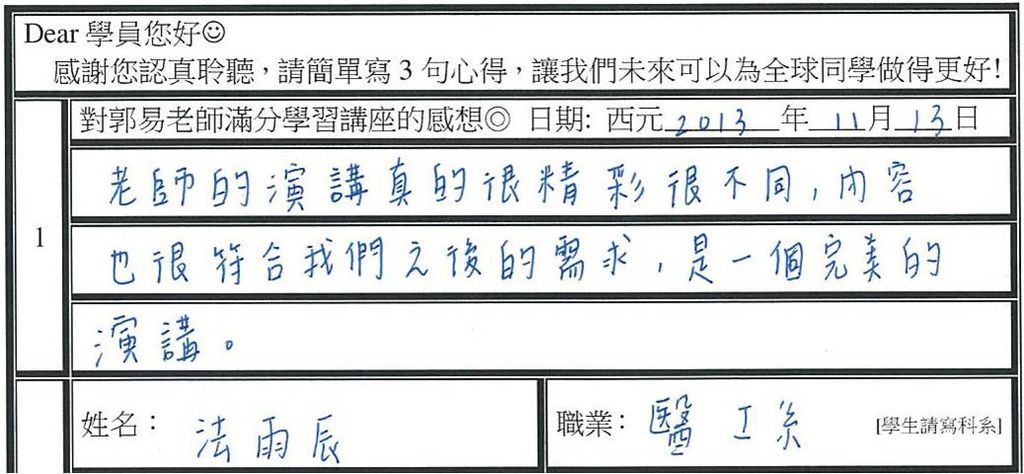 Dear 學員您好☺
感謝您認真聆聽，請簡單寫 3 句心得，讓我們未來可以為全球同學做得更好!
對郭易老師滿分學習講座的感想◎ 日期: 西元 2013 年 11 月 13 日
老師的演講真的很精彩很不同，內容
1
也很符合我們之後的需求，是一個完美的
演講。
姓名： 法雨辰 職業： 醫工系 [學生請寫科系]